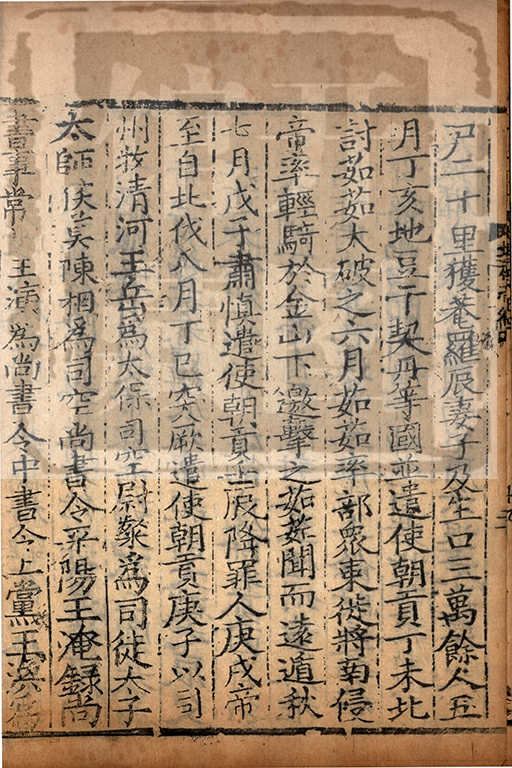 尸二十里獲菴羅辰妻子及生口三萬餘人五
月丁亥地豆干契丹等國並遣使朝貢丁未北
討茹茹大破之六月茹茹率部眾東徙將南侵
帝率輕騎於金山下邀擊之茹茹聞而遠遁秋
七月戊子肅慎遣使朝貢壬辰降罪人庚戌帝
至自北伐八月丁巳突厥遣使朝貢庚子以司
州牧清河王岳為太保司空尉粲為司徒太子
太師侯莫陳相為司空尚書令平陽王淹録尚
書事常山王演為尚書令中書令上黨王渙為